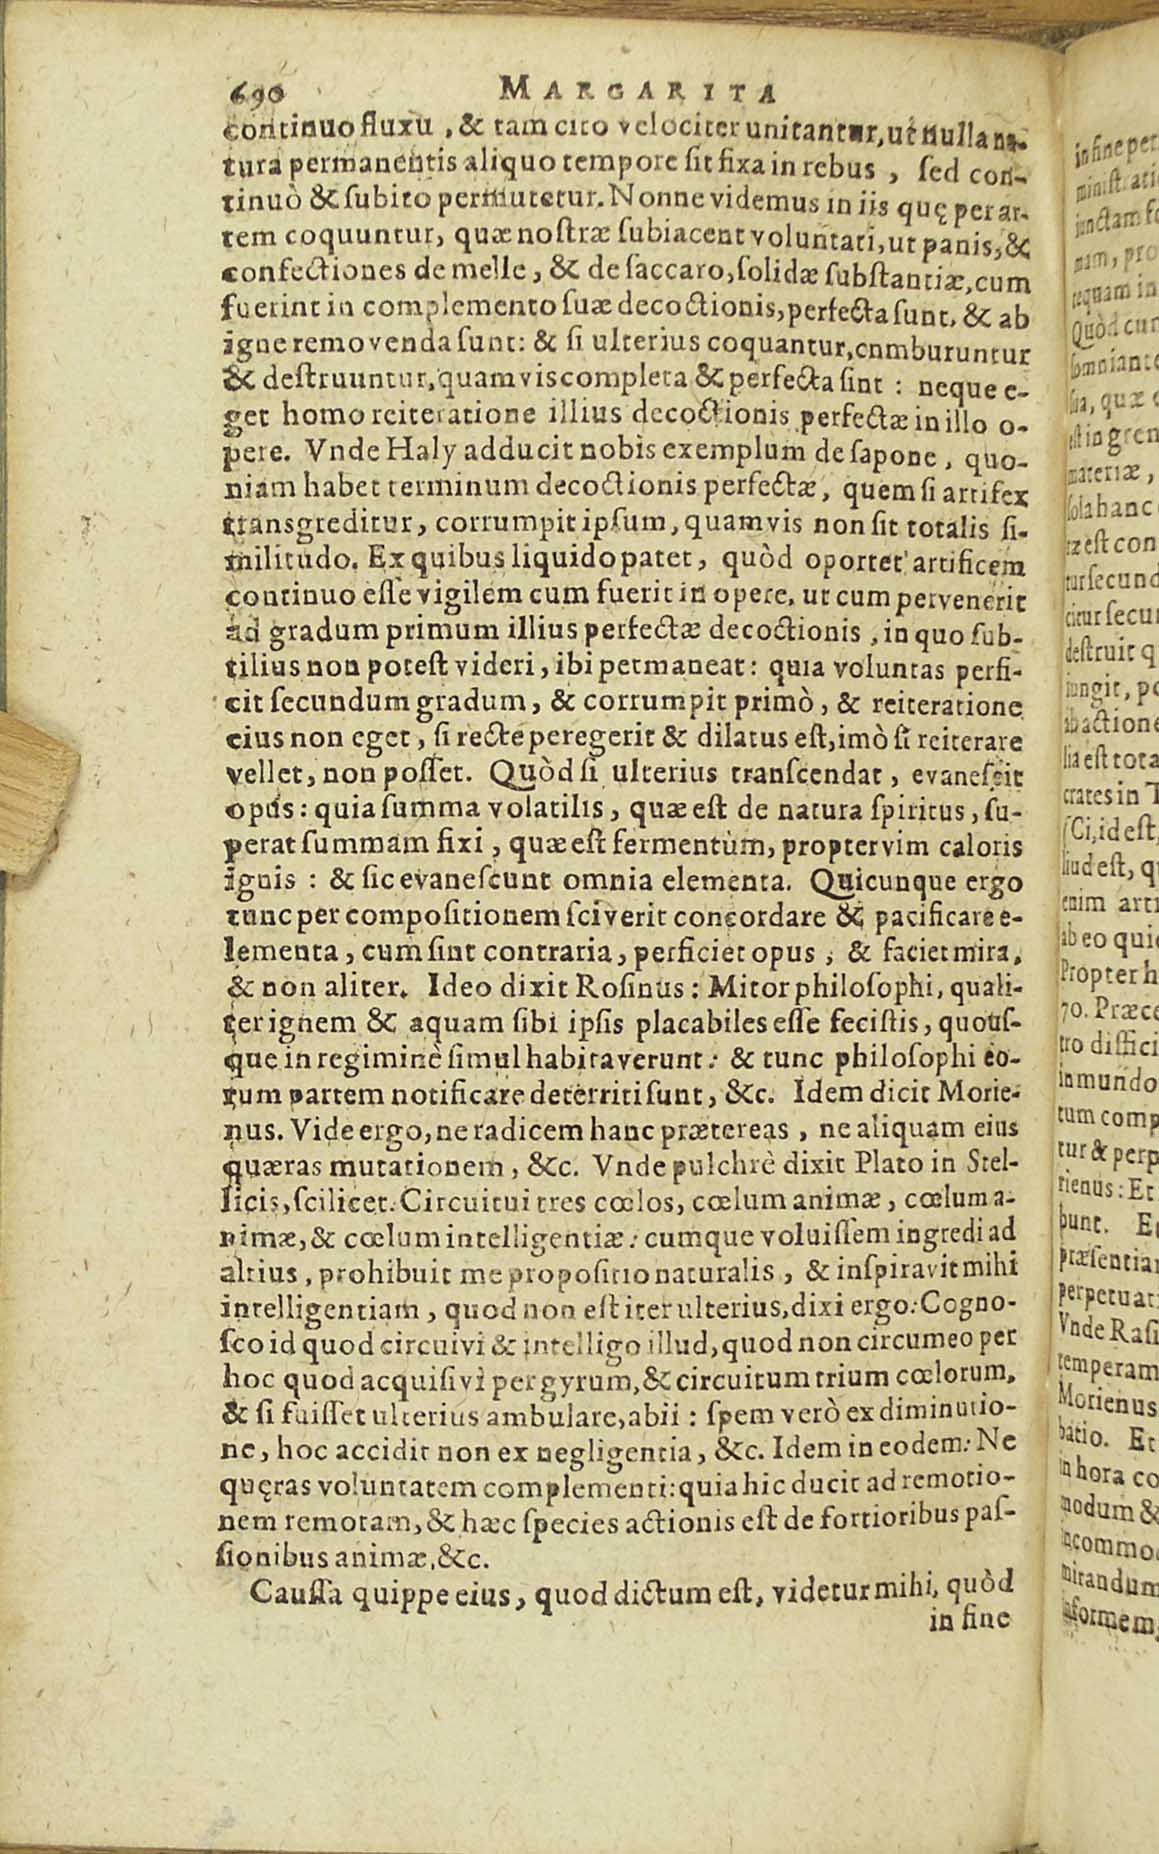 690 MARGARITA
continuo fluxu, & tam cito velociter unitantur, ut nulla na-
tura permanentis aliquo tempore sit fixa in rebus, sed con-
tinuò & subito permutetur. Nonne videmus in iis quę per ar-
tem coquuntur, quæ nostræ subiacent voluntati, ut panis, &
confectiones de melle, & de saccaro, solidæ substantiæ, cum
fuerint in complemento suæ decoctionis, perfecta sunt, & ab
igne removenda sunt: & si ulterius coquantur, cnmburuntur
& destruuntur, quamvis completa & perfecta sint: neque e-
get homo reiteratione illius decoctionis perfectæ in illo o-
pere. Vnde Haly adducit nobis exemplum de sapone, quo-
niam habet terminum decoctionis perfectæ, quem si artifex
transgreditur, corrumpit ipsum, quamvis non sit totalis si-
militudo. Ex quibus liquido patet, quòd oportet artificem
continuo esse vigilem cum fuerit in opere, ut cum pervenerit
ad gradum primum illius perfectæ decoctionis, in quo sub-
tilius non potest videri, ibi permaneat: quia voluntas perfi-
cit secundum gradum, & corrumpit primò, & reiteratione
eius non eget, si recte peregerit & dilatus est, imò si reiterare
vellet, non posset. Quòd si ulterius transcendat, evanescit
opus: quia summa volatilis, quæ est de natura spiritus, su-
perat summam fixi, quæ est fermentum, propter vim caloris
ignis: & sic evanescunt omnia elementa. Quicunque ergo
tunc per compositionem sciverit concordare & pacificare e-
lementa, cum sint contraria, perficiet opus, & faciet mira,
& non aliter. Ideo dixit Rosinus: Miror philosophi, quali-
ter ignem & aquam sibi ipsis placabiles esse fecistis, quous-
que in regiminè simul habitaverunt: & tunc philosophi eo-
rum partem notificare deterriti sunt, &c. Idem dicit Morie-
nus. Vide ergo, ne radicem hanc prætereas, ne aliquam eius
quæras mutationem, &c. Vnde pulchrè dixit Plato in Stel-
licis, scilicet: Circuitui tres cœlos, cœlum animæ, cœlum a-
nimæ, & cœlum intelligentiæ: cumque voluissem ingredi ad
altius, prohibuit me propositio naturalis, & inspiravit mihi
intelligentiam, quod non est iter ulterius, dixi ergo: Cogno-
sco id quod circuivi & intelligo illud, quod non circumeo per
hoc quod acquisivi per gyrum, & circuitum trium cœlorum,
& si fuisset ulterius ambulare, abii: spem verò ex diminutio-
ne, hoc accidit non ex negligentia, &c. Idem in eodem: Ne
quęras voluntatem complementi: quia hic ducit ad remotio-
nem remotam, & hæc species actionis est de fortioribus pas-
sionibus animæ, &c.
Caussa quippe eius, quod dictum est, videtur mihi, quòd
in fine
in fine per
ministrati
iunctam
mam, pro
tequam in
Quòd cum
somniante
sua, quæ
est in grem
materiæ,
sola hanc
est con
tur secund
citur secu
destruit q
iungit, po
ab actione
lia est tota
crates in T
(Ci, id est,
liud est, q
enim arti
ab eo qui
Propter h
70. Præce
tro diffici
in mundo
tum comp
tur & perp
rienus: Et
bunt. E
præsentia
perpetuat
Vnde Rasi
temperam
Morienus
batio. Et
in hora co
modum &
incommo
mirandum
informem